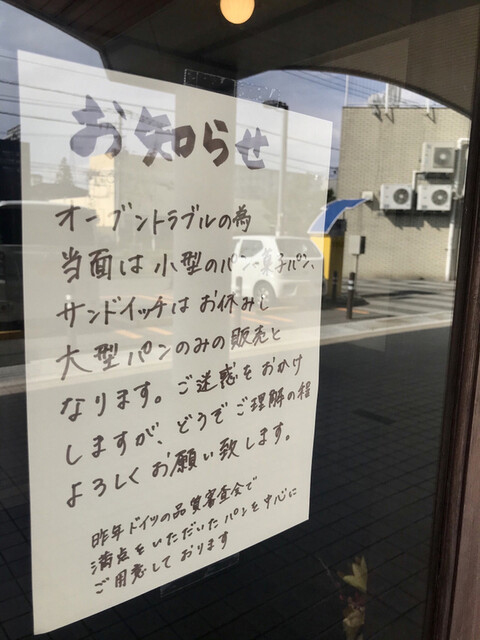 お知らせ
オーブントラブルの為
当面は小型のパン・菓子パン、
サンドイッチはお休みし
大型パンのみの販売と
なります。ご迷惑をおかけ
しますが、どうぞご理解の程
よろしくお願い致します。
昨年ドイツの品質審査会で
満点をいただいたパンを中心に
ご用意しております